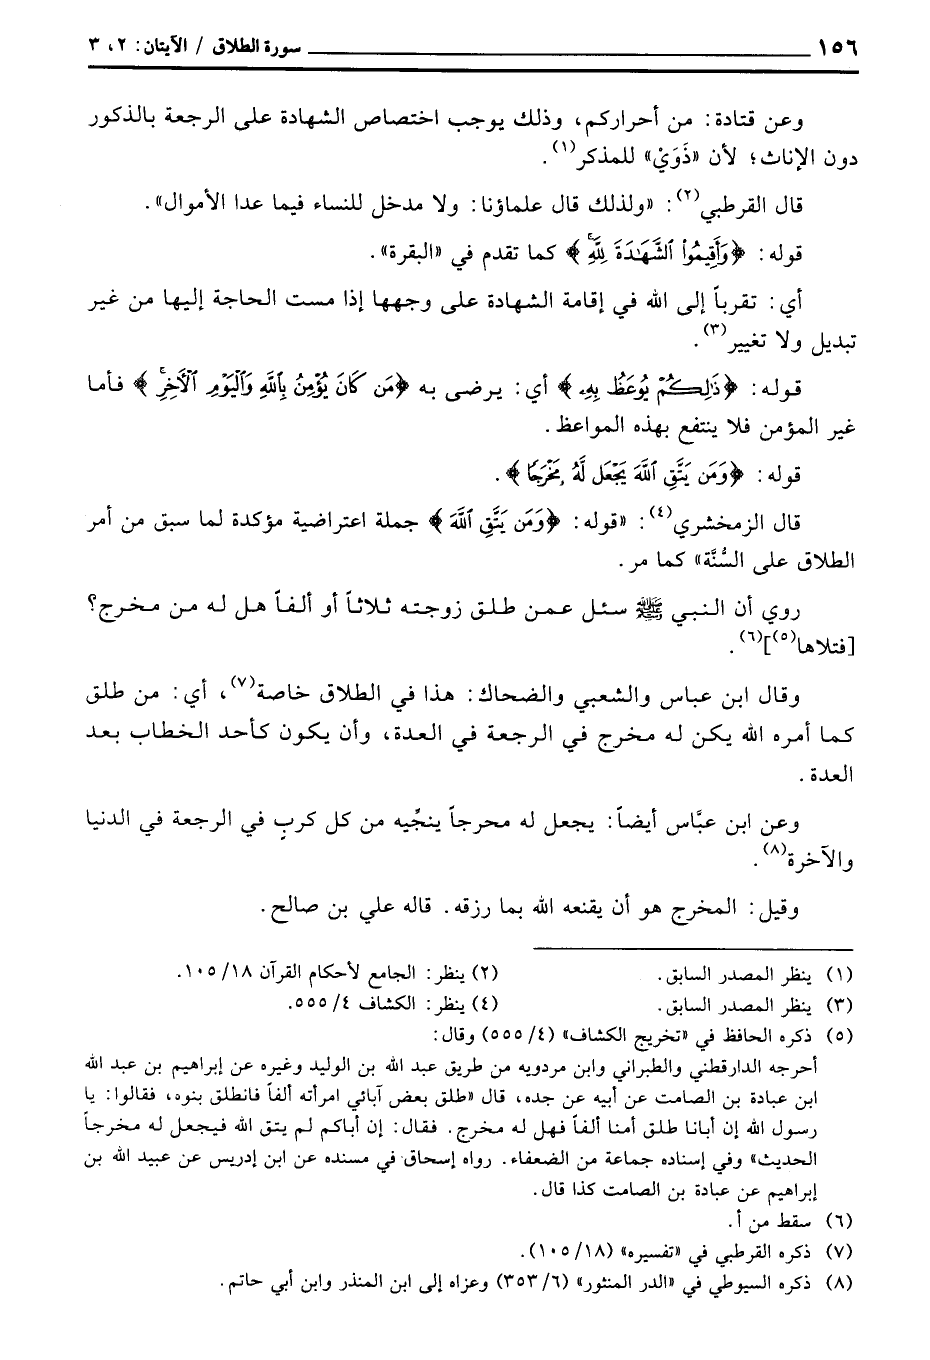 ١٥٦ سورة الطلاق / الآيتان: ٢، ٣
وعن قتادة: من أحراركم، وذلك يوجب اختصاص الشهادة على الرجعة بالذكور
دون الإناث؛ لأن «ذَوَيْ» للمذكر(١).
قال القرطبي(٢): «ولذلك قال علماؤنا: ولا مدخل للنساء فيما عدا الأموال».
قوله: ﴿وَأَقِيمُوا۟ ٱلشَّهَـٰدَةَ لِلَّهِۚ﴾ كما تقدم في «البقرة».
أي: تقرباً إلى الله في إقامة الشهادة على وجهها إذا مست الحاجة إليها من غير
تبديل ولا تغيير(٣).
قوله: ﴿ذَٰلِكُمْ يُوعَظُ بِهِۦ﴾ أي: يرضى به ﴿مَن كَانَ يُؤْمِنُ بِٱللَّهِ وَٱلْيَوْمِ ٱلْـَٔاخِرِۚ﴾ فأما
غير المؤمن فلا ينتفع بهذه المواعظ.
قوله: ﴿وَمَن يَتَّقِ ٱللَّهَ يَجْعَل لَّهُۥ مَخْرَجًا﴾.
قال الزمخشري(٤): «قوله: ﴿وَمَن يَتَّقِ ٱللَّهَ﴾ جملة اعتراضية مؤكدة لما سبق من أمر
الطلاق على السُّنَّة» كما مر.
روي أن النبي ﷺ سئل عمن طلق زوجته ثلاثاً أو ألفاً هل له من مخرج؟
[فتلاها(٥)](٦).
وقال ابن عباس والشعبي والضحاك: هذا في الطلاق خاصة(٧)، أي: من طلق
كما أمره الله يكن له مخرج في الرجعة في العدة، وأن يكون كأحد الخطاب بعد
العدة.
وعن ابن عبَّاس أيضاً: يجعل له محرجاً ينجِّيه من كل كربٍ في الرجعة في الدنيا
والآخرة(٨).
وقيل: المخرج هو أن يقنعه الله بما رزقه. قاله علي بن صالح.
(١) ينظر المصدر السابق. (٢) ينظر: الجامع لأحكام القرآن ١٠٥/١٨.
(٣) ينظر المصدر السابق. (٤) ينظر: الكشاف ٥٥٥/٤.
(٥) ذكره الحافظ في «تخريج الكشاف» (٥٥٥/٤) وقال:
أحرجه الدارقطني والطبراني وابن مردويه من طريق عبد الله بن الوليد وغيره عن إبراهيم بن عبد الله
ابن عبادة بن الصامت عن أبيه عن جده، قال «طلق بعض آبائي امرأته ألفاً فانطلق بنوه، فقالوا: يا
رسول الله إن أبانا طلق أمنا ألفاً فهل له مخرج. فقال: إن أباكم لم يتق الله فيجعل له مخرجاً
الحديث» وفي إسناده جماعة من الضعفاء. رواه إسحاق في مسنده عن ابن إدريس عن عبيد الله بن
إبراهيم عن عبادة بن الصامت كذا قال.
(٦) سقط من أ.
(٧) ذكره القرطبي في «تفسيره» (١٠٥/١٨).
(٨) ذكره السيوطي في «الدر المنثور» (٣٥٣/٦) وعزاه إلى ابن المنذر وابن أبي حاتم.